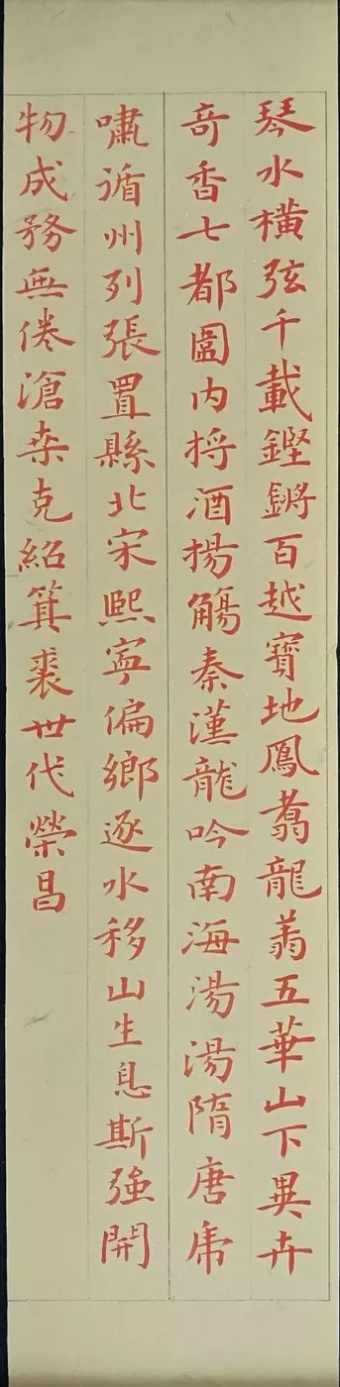 琴水橫弦千載鏗鏘百越寶地鳳翥龍翥五華山下異卉
奇香七都圍內捋酒揚觴秦漢龍吟南海湯湯隋唐虎
嘯循州列張置縣北宋熙寧偏鄉逐水移山生息斯強開
物成務無倦滄桑克紹箕裘世代榮昌